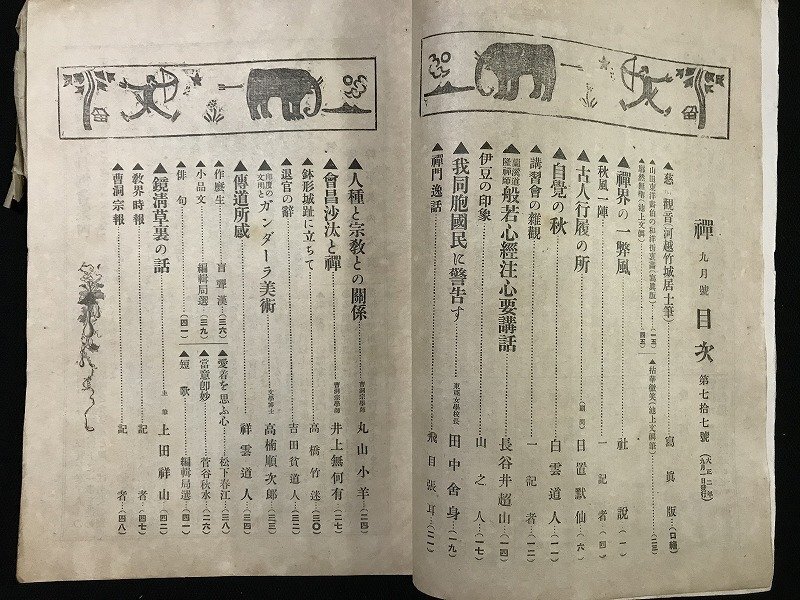 禪 九月號 目次 第七拾七號 (大正二年九月一日發行)
▲慈觀音(河越竹城居士筆)……寫眞版…(口繪)
▲禪界の一弊風……社說…(一)
▲秋風一陣……一記者…(四)
▲古人行履の所……日置默仙…(六)
▲自覺の秋……白雲道人…(一一)
▲講習會の雜觀……一記者…(一二)
▲般若心經注心要講話……長谷井超山…(一四)
▲伊豆の印象……山之人…(一七)
▲我同胞國民に警告す……東亞女學校長 田中舍身…(一九)
▲禪門逸話……飛目張耳…(二一)
▲人種と宗教との關係……曹洞宗學師 丸山小羊…(二四)
▲會昌沙汰と禪……曹洞宗學師 井上無何有…(二七)
▲鉢形城趾に立ちて……高橋竹迷…(三〇)
▲退官の辭……吉田貧道人…(三二)
▲印度の文明とガンダーラ美術……文學博士 高楠順次郎…(三三)
▲傳道所感……祥雲道人…(三四)
▲作麽生……盲聾漢…(三六)
▲愛着を思ふ心…松下春江…(三八)
▲小品文……編輯局選…(三九)
▲當意卽妙……菅谷秋水…(二六)
▲俳句……(四一)
▲短歌……編輯局選…(四一)
▲鏡淸草裏の話……主筆 上田祥山…(四二)
▲教界時報……記者…(四七)
▲曹洞宗報……記者…(四八)